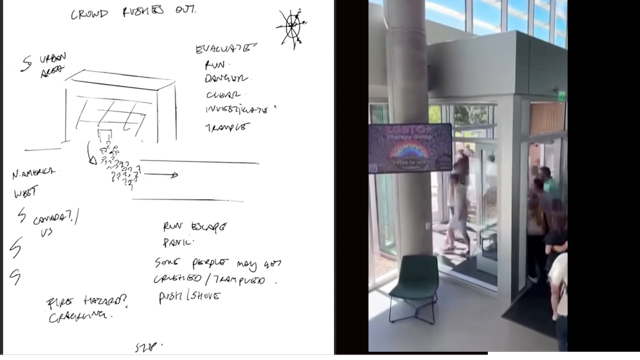 CROWD RUSHES OUT.
S URBAN
AREA
EVALUATE?
RUN.
DANGER.
CLEAR.
INVESTIGATE?
TRAMPLE
N. AMERICA
WEST
S CANADA? /
US
S
S
RUN ESCAPE
PANIC.
SOME PEOPLE MAY GET
CRUSHED / TRAMPLED.
PUSH / SHOVE
FIRE HAZARD?
CRACKLING.
LGBTQ+
Therapy Group